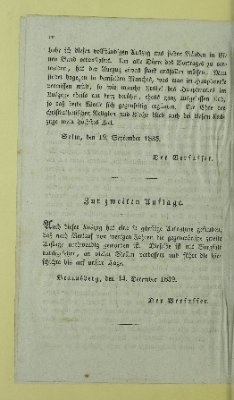 IV
habe ich diesen vollständigen Auszug aus jenen Bänden in Ei-
nen Band veranstaltet. Um alle Dürre des Vortrages zu ver-
meiden, hat der Auszug etwas stark ausfallen müssen. Man
findet dagegen in demselben Manches, was man im Hauptwerke
vermissen wird, so wie manche Artikel des Hauptwerkes im
Auszuge theils nur berührt, theils ganz ausgelassen sind,
so daß beide Werke sich gegenseitig ergänzen. Die Ehre der
christkatholischen Religion und Kirche blieb auch bei diesem Aus-
zuge mein höchstes Ziel.
den 19. September 1835.
Der Verfasser.
Zur zweiten Auflage.
Auch dieser Auszug hat eine so günstige Aufnahme gefunden,
daß nach Verlauf von wenigen Jahren die gegenwärtige zweite
Auflage nothwendig geworden ist. Dieselbe ist mit Sorgfalt
durchgesehen, an vielen Stellen verbessert und führt die
bis auf unsere Tage.
Braunsberg, den 14. December 1839.
Der Verfasser.